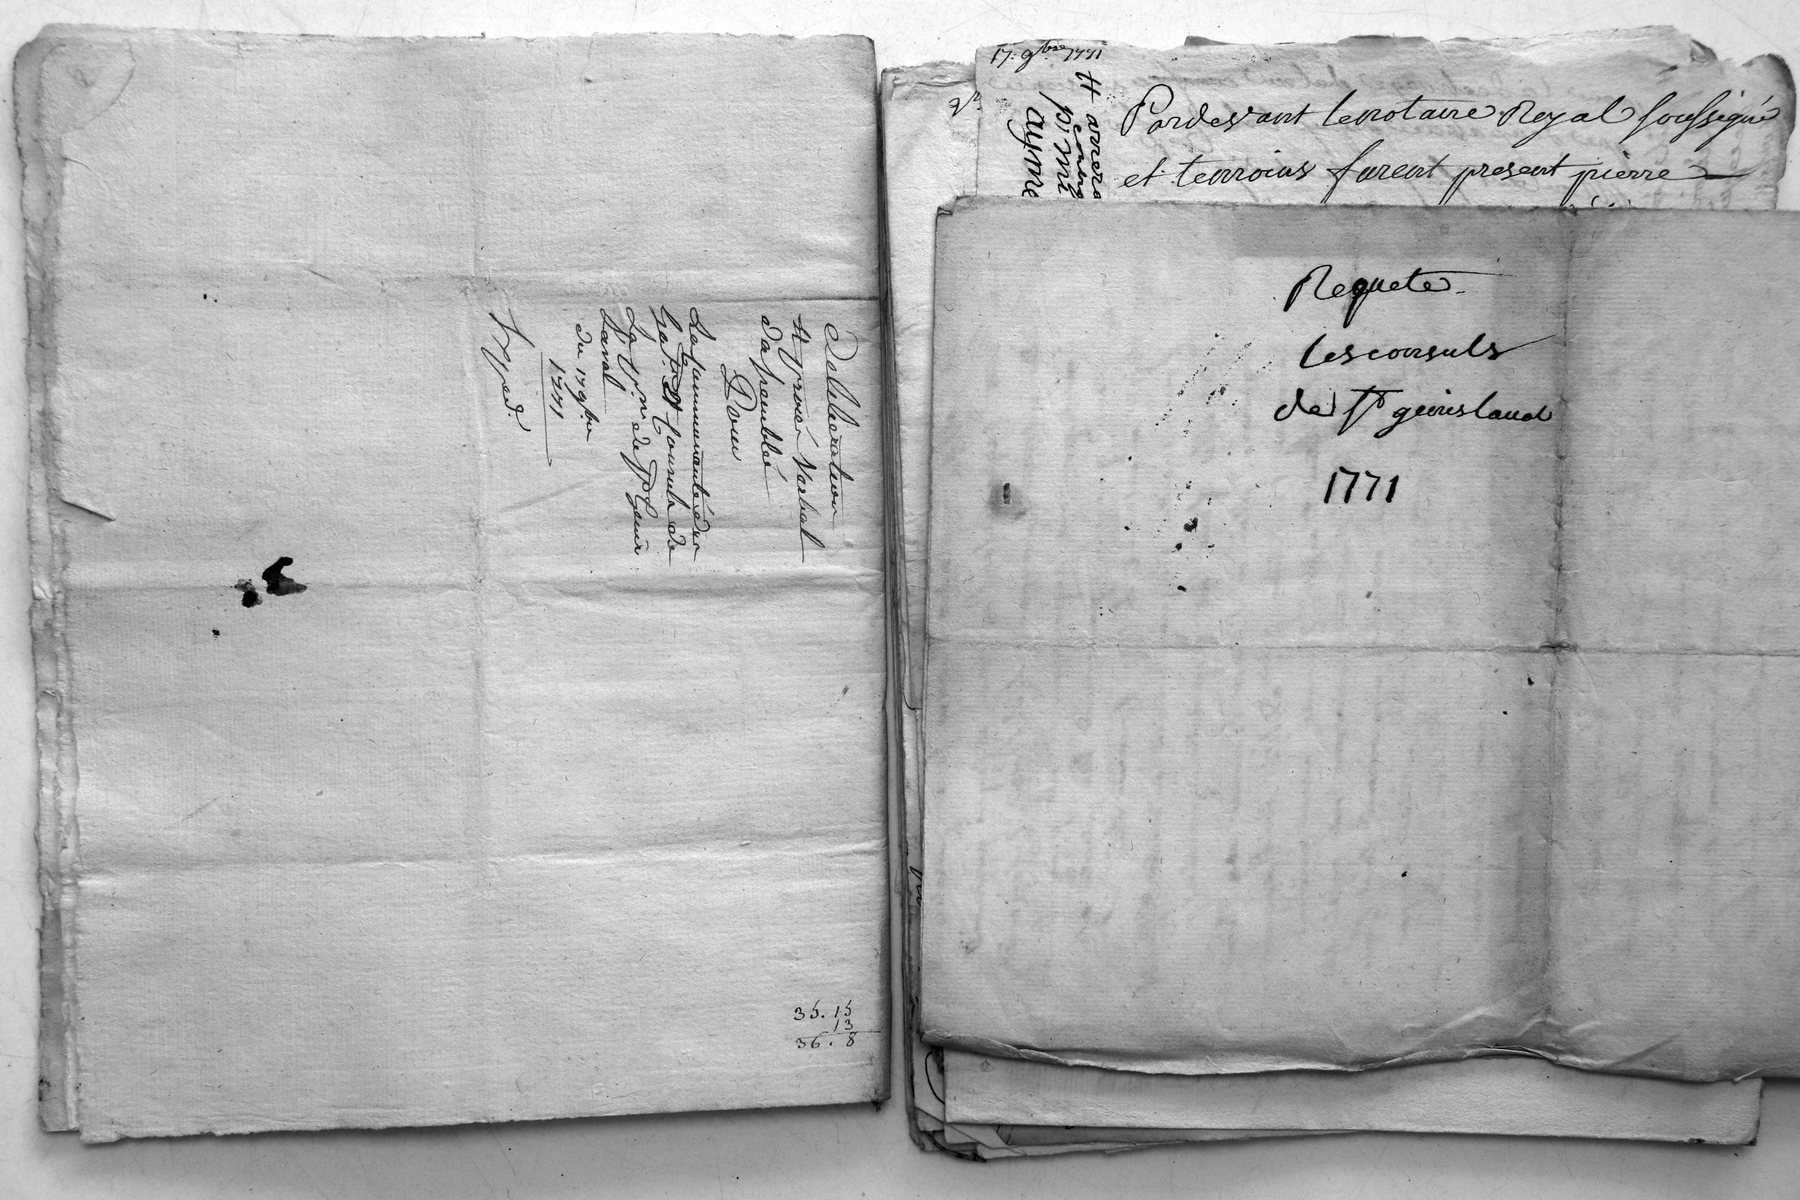 deliberation
et procé Verbal
d'assemblée
Pour
La Communauté des
hab. et Consuls de
de St Geniés
Laval
du 17 9bre
1771
Exped.
35. 15
13
36. 8
17. 9bre 1771
Pardevant le notaire Royal soussigné
et temoins furent present pierre
Requete
les consuls
de St genis laval
1771